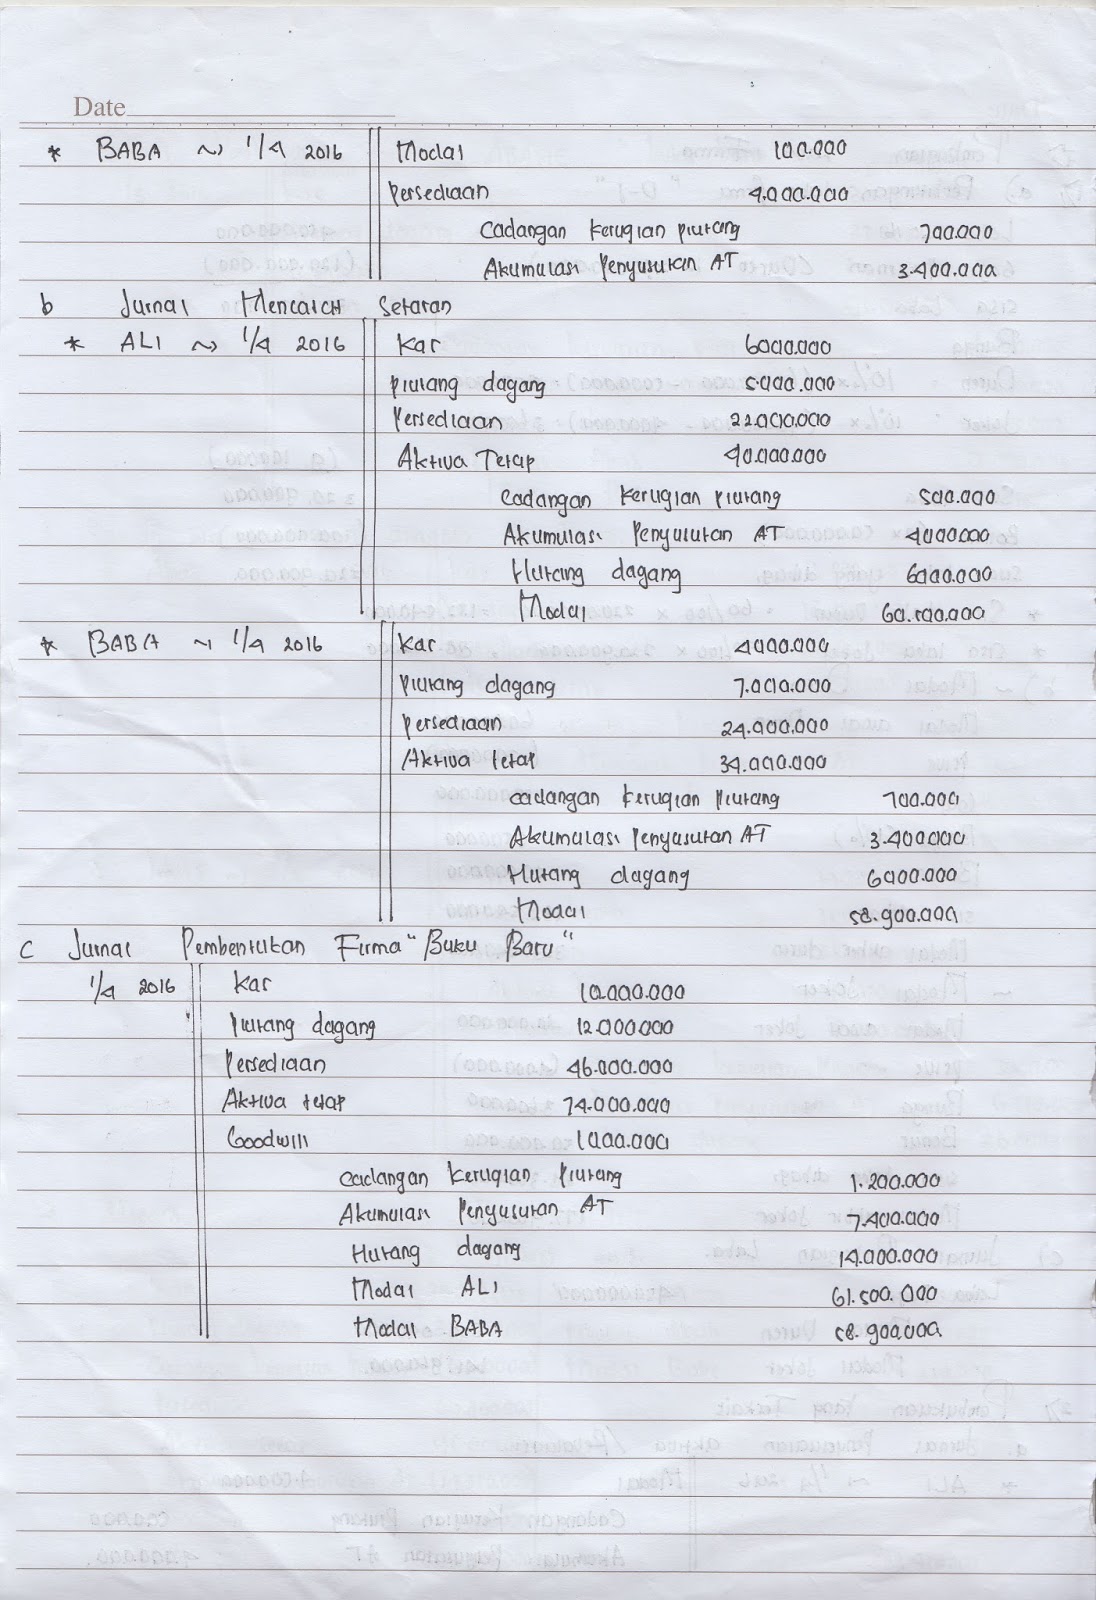 Date
* BABA ~ 1/4 2016 Modal 100.000
Persediaan 4.000.000
Cadangan kerugian piutang 700.000
Akumulasi Penyusutan AT 3.400.000
b Jurnal Mencatat Setoran
* ALI ~ 1/4 2016 Kas 6000.000
Piutang dagang 5.000.000
Persediaan 22.000.000
Aktiva Tetap 40.000.000
Cadangan kerugian piutang 500.000
Akumulasi Penyusutan AT 4000000
Hutang dagang 6000.000
Modal
* BABA ~ 1/4 2016 Kas 4000.000
Piutang dagang 7.000.000
Persediaan 24.000.000
Aktiva tetap 34.000.000
Cadangan kerugian piutang 700.000
Akumulasi Penyusutan AT 3.400.000
Hutang dagang 6000.000
Modal 58.900.000
C Jurnal Pembentukan Firma "Buku Baru"
1/4 2016 Kas 10.000.000
Piutang dagang 12.000.000
Persediaan 46.000.000
Aktiva tetap 74.000.000
Goodwill 1.000.000
Cadangan kerugian piutang 1.200.000
Akumulasi Penyusutan AT 7.400.000
Hutang dagang 14.000.000
Modal ALI 61.500.000
Modal BABA 58.900.000